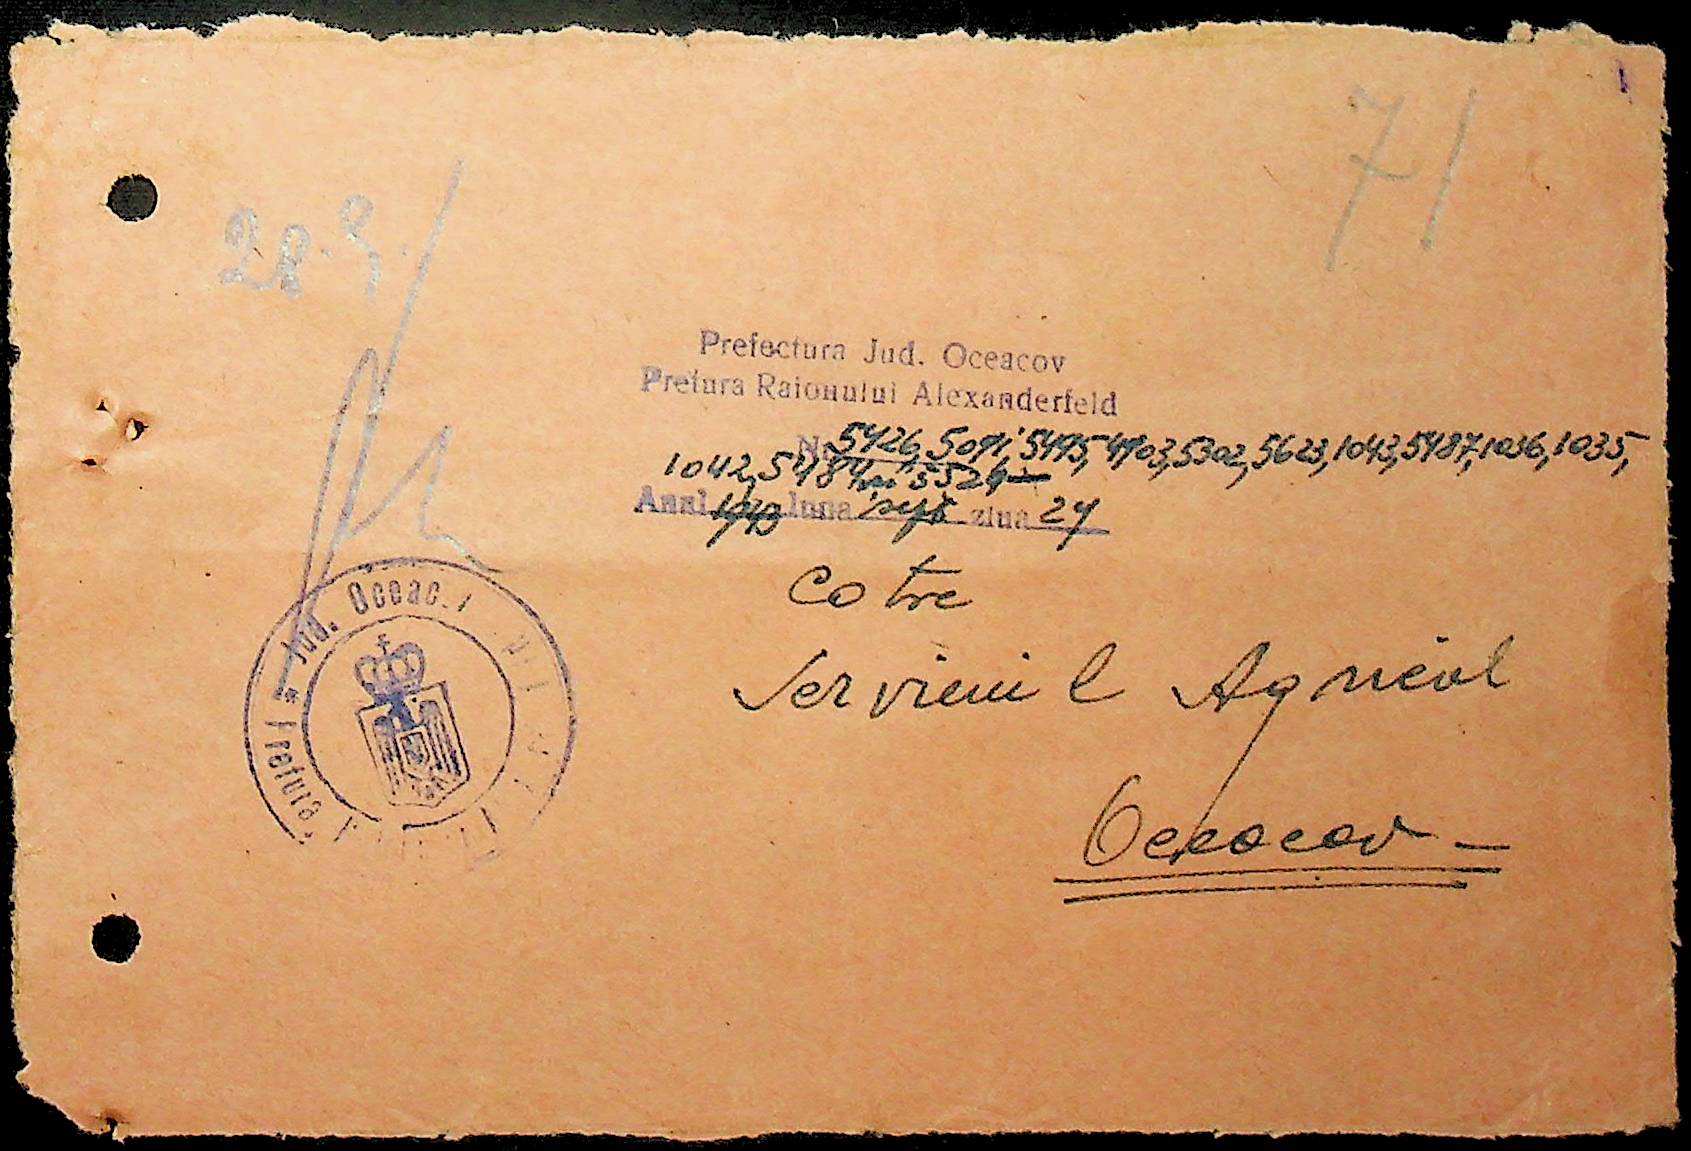 71
28.9.
Prefectura Jud. Oceacov
Pretura Raionului Alexanderfeld
No 5426, 5091, 5495, 4903, 5302, 5623, 1043, 5487, 1036, 1035,
1042, 5484 și 5524
Anul 1943 luna sept ziua 24
Cotre
Serviciul Agricol
Oceacov
Pretura Jud. Oceac